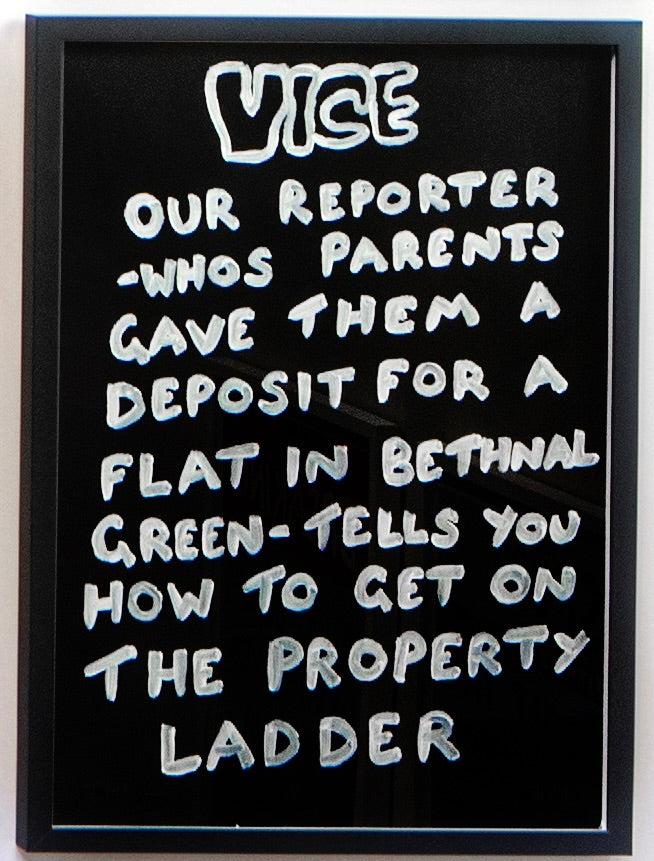 VICE
OUR REPORTER
-WHOS PARENTS
GAVE THEM A
DEPOSIT FOR A
FLAT IN BETHNAL
GREEN-TELLS YOU
HOW TO GET ON
THE PROPERTY
LADDER